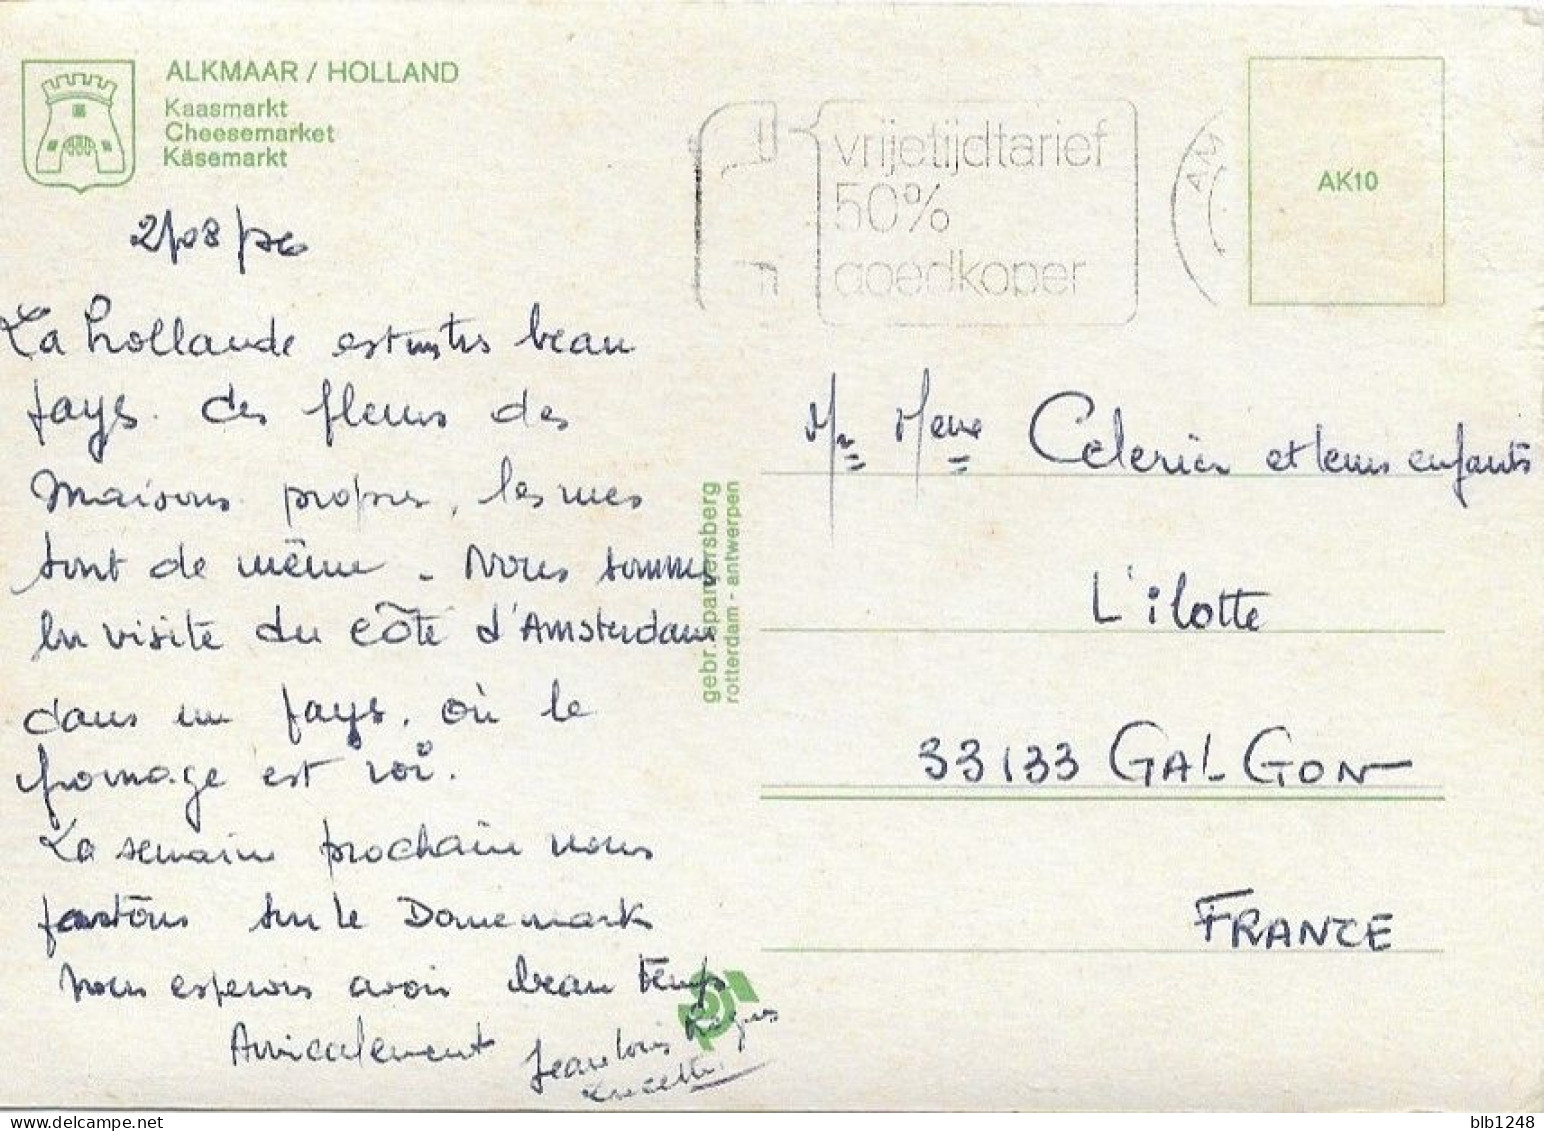 ALKMAAR / HOLLAND
Kaasmarkt
Cheesemarket
Käsemarkt
vrijetijdtarief
50%
goedkoper
AM
AK10
2/08/76
La hollande est un très beau
pays. des fleurs des
Maisons propres, les rues
sont de même. Nous sommes
en visite du côté d'Amsterdam
dans un pays. où le
fromage est roi.
La semaine prochaine nous
partons sur le Danemark
nous esperons avoir beau temps
Amicalement Jean Louis
Lucette
gebr. spanjersberg
rotterdam - antwerpen
Mr Meme Celerier et leurs enfants
L'ilotte
33133 GALGON
FRANCE
blb1248